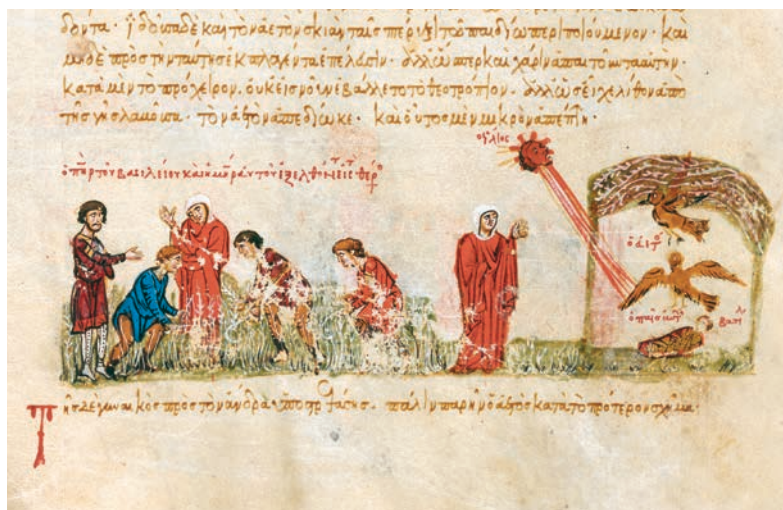 δόντα · ἰδοῦσα δὲ καὶ τὸν ἀετὸν σκιὰν ταῖς πτέρυξι τῶ παιδίω περιποιούμενον · καὶ
μηδὲ πρὸς τὴν ταύτης ἐκπλαγέντα ἐπέλευσιν · ἀλλ ὥσπερ καὶ χάριν ἀπαιτοῦντα αὐτὴν ·
κατὰ μὲν τὸ πρόχειρον, οὐκ εἰς νοῦν ἐβάλλετο τὸ θεοτρόπιον · ἀλλ ὡς εἶχε λίθον ἀπὸ
τῆς γῆς λαβοῦσα · τὸν ἀετὸν ἀπεδίωκε · καὶ οὗτος μὲν μικρὸν ἀπέπτη ·
ὁ ἥλιος
ὁ πηρ τοῦ βασιλείου καὶ ἡ μηρ αὐτοῦ ἐξελθόντες εἰς τ θέρο
ὁ ἀετο
ὁ παῖς
βασιλ
Τῆς δὲ γυναικὸς πρὸς τὸν ἄνδρα ὑποστρεψάσης · πάλιν παρῆν ὁ ἀετὸς κατὰ τὸ πρότερον σχῆμα ·